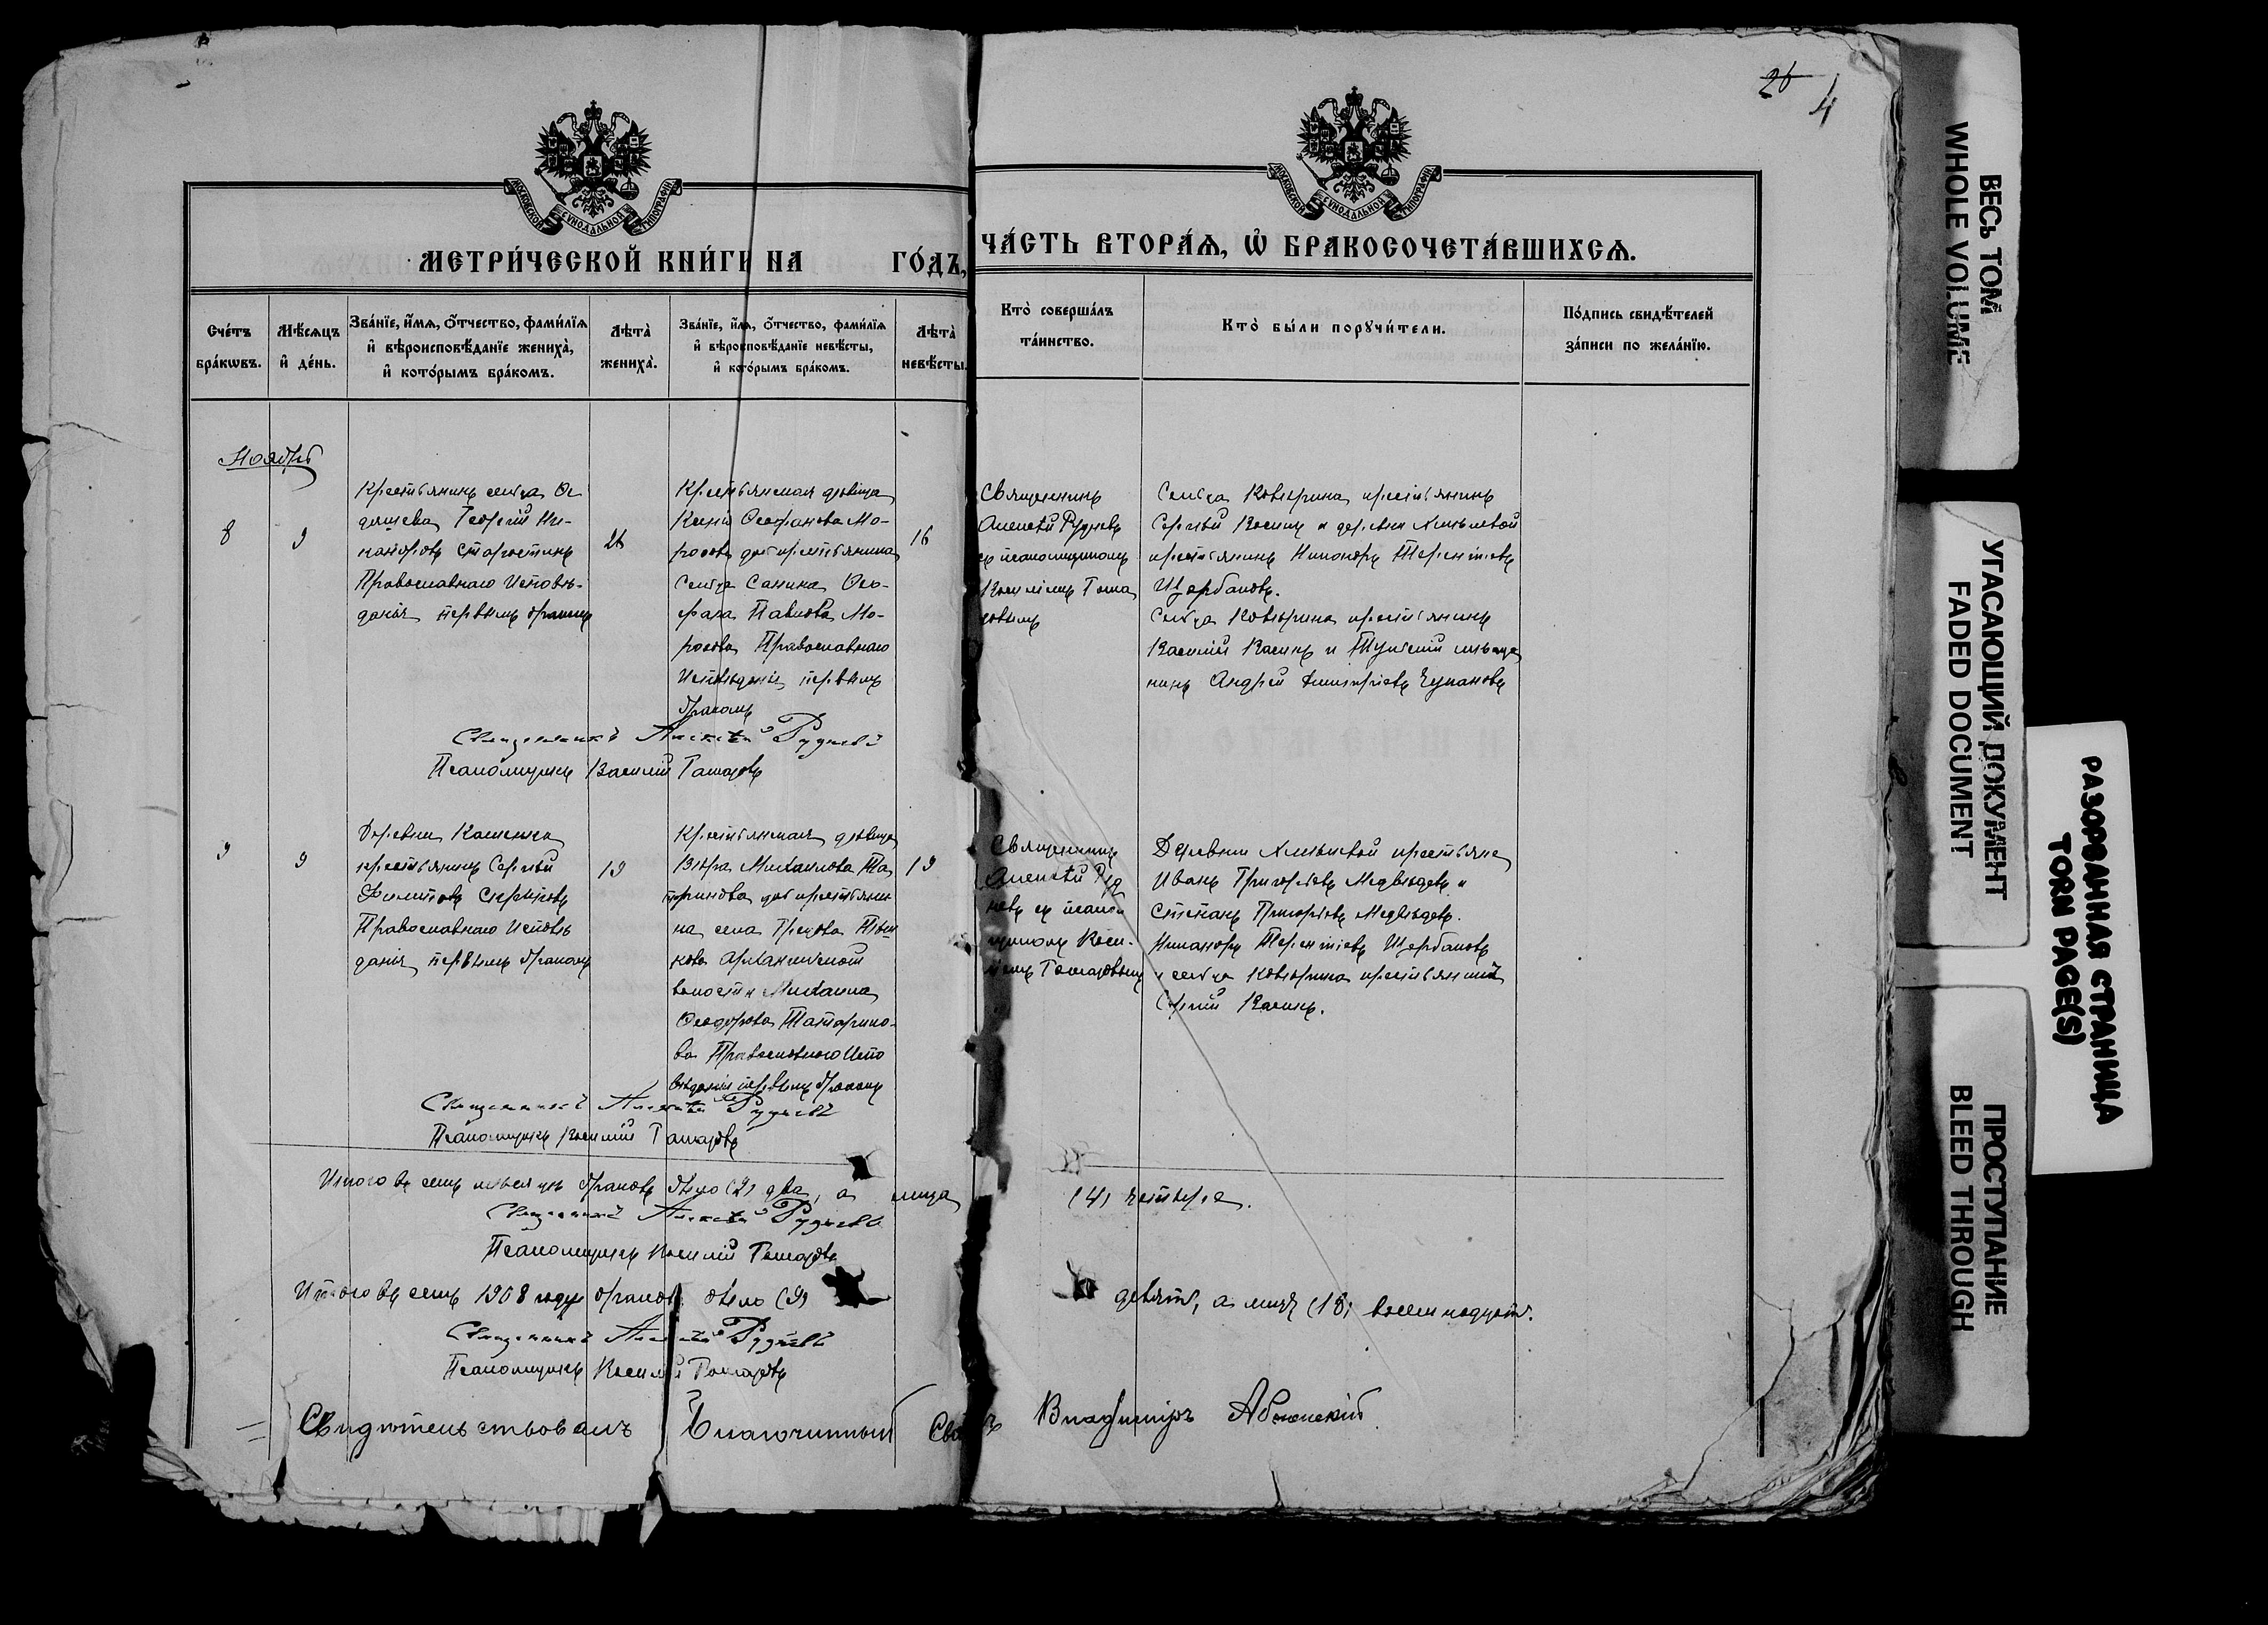 26
4
МОСКОВСКОЙ СѴНОДАЛЬНОЙ ТИПОГРАФІИ
МОСКОВСКОЙ СѴНОДАЛЬНОЙ ТИПОГРАФІИ
МЕТРИ́ЧЕСКОЙ КНИ́ГИ НА ГО́ДЪ,
ЧА́СТЬ ВТОРА́Ѧ, Ѡ҆ БРАКОСОЧЕТА́ВШИХСѦ.
Сче́тъ
бра́кѡвъ.
Мѣ́сѧцъ
и҆ де́нь.
Зва́нїе, и҆́мѧ, ѻ҆́тчество, фами́лїѧ
и҆ вѣроисповѣ́данїе жениха̀,
и҆ кото́рымъ бра́комъ.
Лѣта̀
жениха̀.
Зва́нїе, и҆́мѧ, ѻ҆́тчество, фами́лїѧ
и҆ вѣроисповѣ́данїе невѣ́сты,
и҆ кото́рымъ бра́комъ.
Лѣта̀
невѣ́сты.
Кто̀ соверша́лъ
та́инство.
Кто̀ бы́ли порꙋчи́тели.
По́дпись свидѣ́телей
за́писи по жела́нїю.
Ноябрь
8
9
Крестьянинъ сельца Ос
Георгій Ни-
каноровъ Старостинъ
Православнаго Исповѣ-
данія первымъ бракомъ
26
Крестьянская дѣвица
Ксенія Ѳеофанова Мо-
розова дочь крестьянина
Сельца Санина Ѳео-
фана Павлова Мо-
розова Православнаго
Исповѣданія первымъ
бракомъ
16
Священникъ
Алексѣй Рудневъ
съ псаломщикомъ
Василіемъ Гома
ровымъ
Сельца Ковшрина крестьянинъ
Сергѣй Васинъ и деревни Хмѣлевой
крестьянинъ Никаноръ Терентіевъ
Щербаковъ.
Сельца Ковшрина крестьянинъ
Василій Васинъ и Тульскій мѣща
нинъ Андрей Димитріевъ Чукановъ
Священникъ Алексѣй Рудневъ
Псаломщикъ Василій Гомаровъ
9
9
Деревни Каменки
крестьянинъ Сергѣй
Филиповъ
Православнаго Исповѣ
данія первымъ бракомъ
19
Крестьянская дѣвица
Вѣра Михаилова Та
таринова дочь крестьяни
на села
Архангельской
волости Михаила
Ѳеодорова Татарино-
ва Православнаго Испо
вѣданія первымъ бракомъ
19
Священникъ
Алексѣй Руд
невъ съ псалом
щикомъ Васи-
ліемъ Гомаровымъ
Деревни Хмѣлевой крестьяне
Иванъ Григорьевъ Медвѣдевъ и
Степанъ Григорьевъ Медвѣдевъ.
Никаноръ Терентіевъ Щербаковъ
и сельца Ковшрина крестьянинъ
Сергѣй Васинъ.
Священникъ Алексѣй Рудневъ
Псаломщикъ Василій Гомаровъ
Итого въ семъ мѣсяцѣ браковъ было (2) два, а лица (4) четыре.
Священникъ Алексѣй Рудневъ
Псаломщикъ Василій Гомаровъ
Итого въ семъ 1908 году браковъ было (9) девять, а лицъ (18) восемнадцать.
Священникъ Алексѣй Рудневъ
Псаломщикъ Василій Гомаровъ
Свидѣтельствовалъ Благочинный Владиміръ
ВЕСЬ ТОМ
WHOLE VOLUME
УГАСАЮЩИЙ ДОКУМЕНТ
FADED DOCUMENT
РАЗОРВАННАЯ СТРАНИЦА
TORN PAGE(S)
ПРОСТУПАНИЕ
BLEED THROUGH